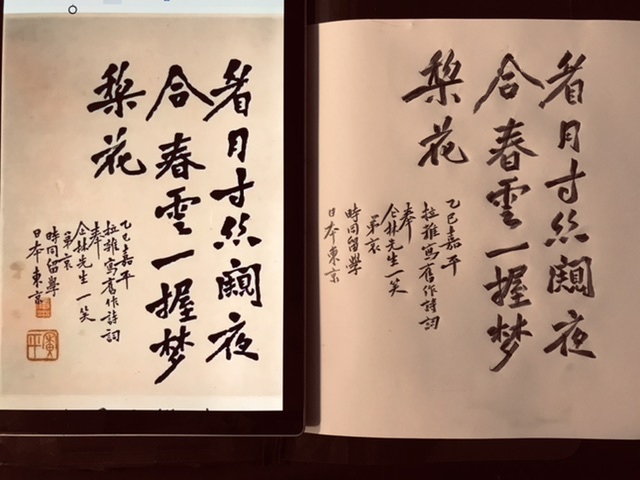 月寸絲闌夜
合春雲一握梦
梨花
乙巳嘉平
拉雜寫舊作詩詞
奉
林先生一笑
弟哀
時同留學
日本東京
月寸絲闌夜
合春雲一握梦
梨花
乙巳嘉平
拉雜寫舊作詩詞
奉
林先生一笑
弟哀
時同留學
日本東京